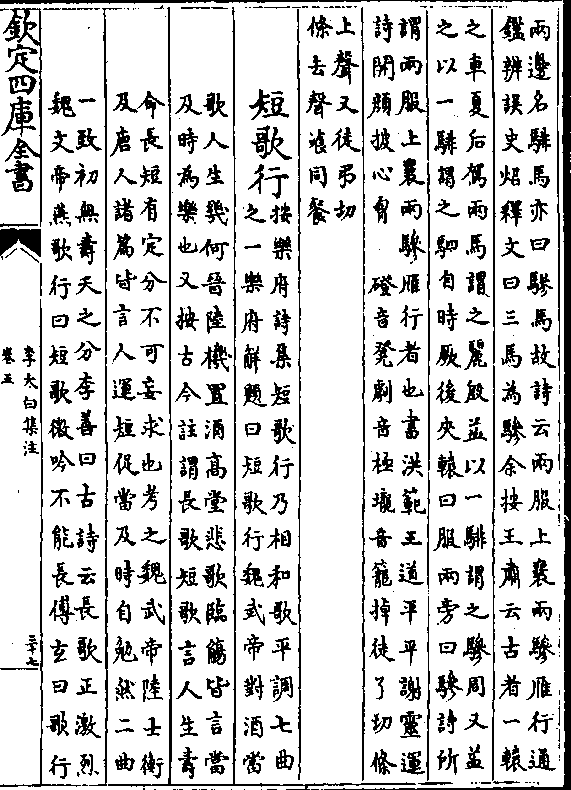 兩邊名騑馬亦曰驂馬故詩云兩服上襄兩驂雁行通
鑑辨誤史炤釋文曰三馬為驂余按王肅云古者一轅
之車夏后駕兩馬謂之麗殷益以一騑謂之驂周又益
之以一騑謂之駟自時厥後夾轅曰服兩旁曰驂詩所
謂兩服上襄兩驂雁行者也書洪範王道平平謝靈運
詩開顔披心胷 磴音凳劇音極壠音籠掉徒了切條
上聲又徒弔切
條去聲飡同餐
短歌行
按樂府詩集短歌行乃相和歌平調七曲
之一樂府解題曰短歌行魏武帝對酒當
歌人生幾何晉陸機置酒高堂悲歌臨觴皆言當
及時為樂也又按古今註謂長歌短歌言人生壽
命長短有定分不可妄求也考之魏武帝陸士衡
及唐人諸篇皆言人運短促當及時自勉然二曲
一致初無壽夭之分李善曰古詩云長歌正激烈
魏文帝燕歌行曰短歌微吟不能長傅玄曰歌行
欽定四庫全書
李太白集注
卷五
三十七